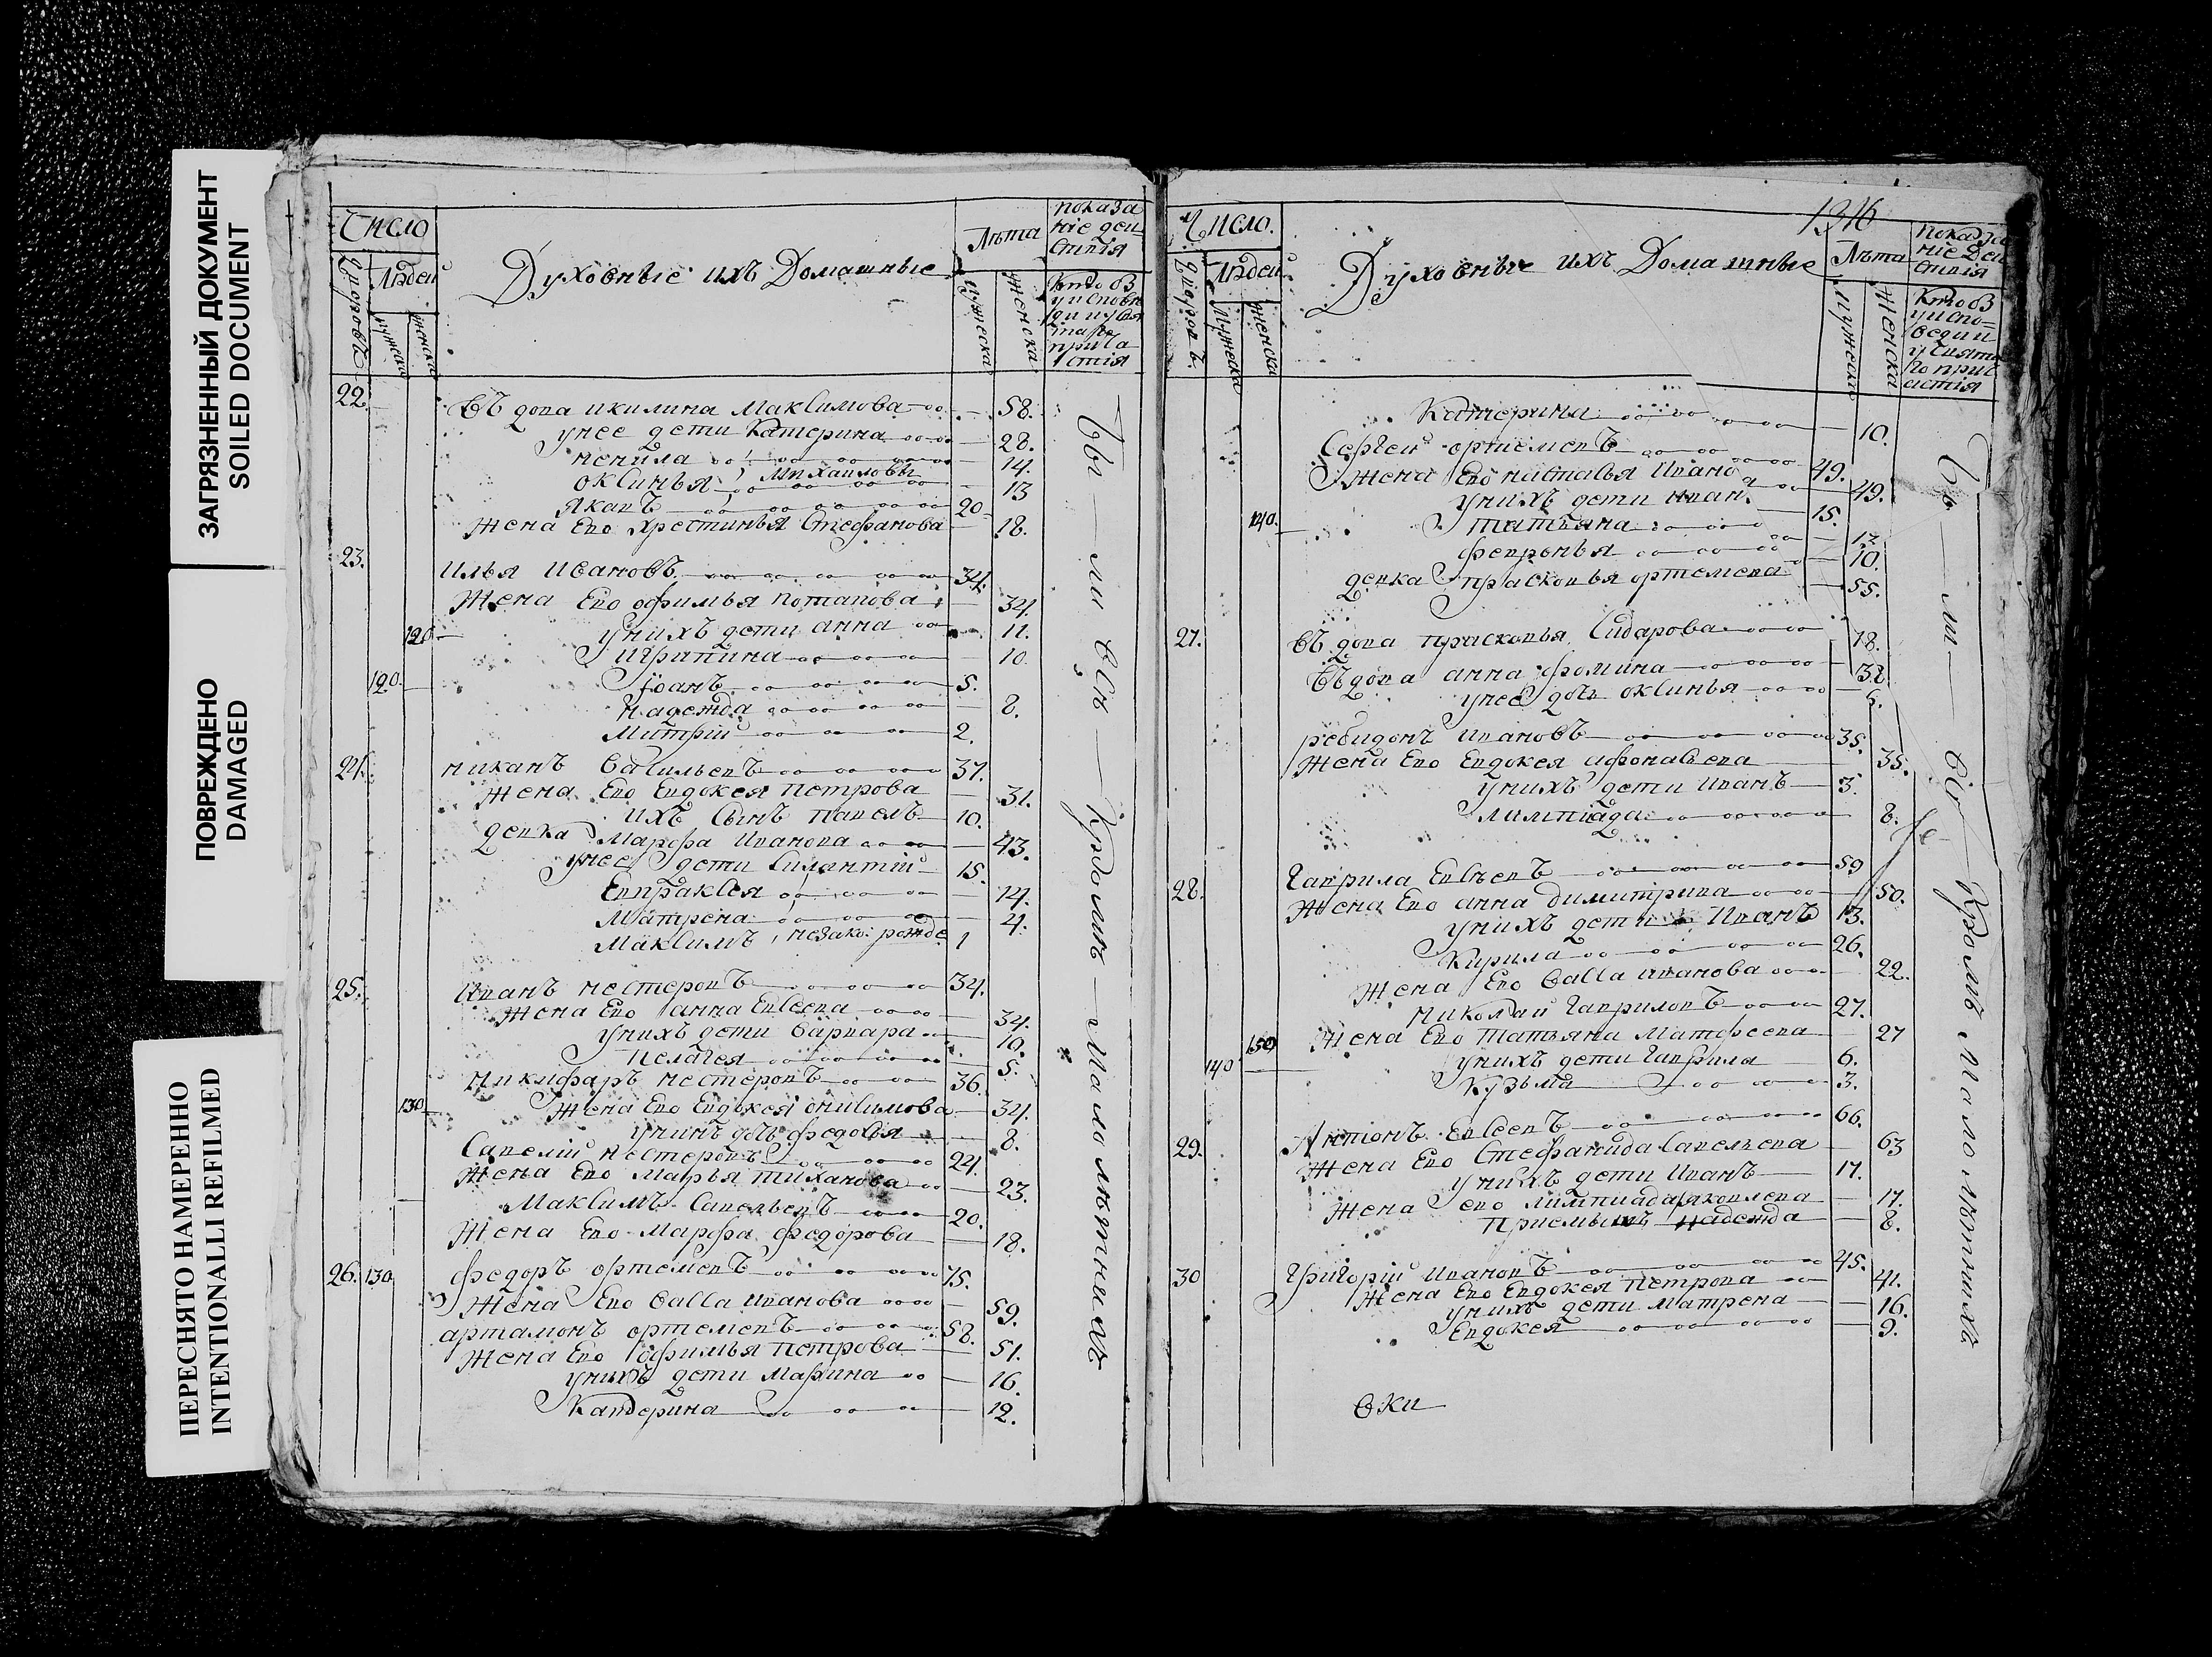 ЗАГРЯЗНЕННЫЙ ДОКУМЕНТ
SOILED DOCUMENT
ПОВРЕЖДЕНО
DAMAGED
ПЕРЕСНЯТО НАМЕРЕННО
INTENTIONALLI REFILMED
Число
Духовные ихъ Домашные
Лѣта
показа
ніе деи
ствія
Дворовъ
Людей
мужеска
женска
мужеска
женска
Кто Въ
у исповѣ
ди и у свя
таго
прича
стія
22. Въдова икилина Максимова 58.
унее дети Катерина 28.
ненила 14.
Михаиловы
оксинья 13
Яковъ 20
Жена Ево Хрестинья Стефанова 18.
23. Илья Ивановъ 34.
Жена Ево офимья потапова 34.
120 унихъ дети анна 11.
игрипина 10.
120. Іоанъ 5.
надежда 8.
Митрій 2.
24. никанъ Васильевъ 37.
Жена Ево Евдокея Петрова 31.
ихъ Сынъ павелъ 10.
девка Марфа Иванова 43.
унее дети Силантій 15.
Евпраксея 14.
Матрена 4.
Максимъ, незако: рожде 1
25. Иванъ нестеровъ 34.
Жена Ево анна Евсеева 34.
унихъ дети Варвара 10.
пелагея 5.
Никифаръ нестеровъ 36.
130 Жена Ево Евдокея онисимова 34.
унихъ дочь федосья 8.
Савелій нестеровъ 24.
Жена Ево Марья тиханова 23.
Максимъ Савельевъ 20.
Жена Ево Марфа федорова 18.
26. 130 федоръ ортемевъ 75.
Жена Ево Васса иванова 59.
артамонъ ортемевъ 58.
Жена Ево офимья петрова 51.
унихъ дети Марина 16.
Катерина 12.
Бы — ли всѣ — Кромѣ — малолѣтныхъ
1316
Число.
Духовные ихъ Домашные
Лѣта
показа
ніе Деи
ствія
Дворовъ.
Людей
Мужеска
женска
мужеска
женска
Кто Въ
у испо=
веди и
у свята
го прич
астія
Катерина 10.
Сергей ортемевъ 49.
Жена Ево наталья Ивано 49.
унихъ дети иван. 15.
140. татьяна 12
февронья 10.
девка прасковья ортемева 55.
27. Въдова прасковья Сидарова 78.
Въдова анна фомина 32
унее дочь оксинья 6.
ребидонъ ивановъ 35.
Жена Ево Евдокея афонасьева 35.
унихъ дети иванъ 3.
лимпіяда 8.
28. Гаврила Евсѣевъ 59
Жена Ево анна димитрива 50.
унихъ дети Иванъ 13.
Кирила 26.
Жена Ево Васса иванова 22.
николай Гавриловъ 27.
150 Жена Ево татьяна Матфеева 27
140 унихъ дети Гаврила 6.
Кузьма 3.
29. Антонъ Евсеевъ 66.
Жена Ево Стефанида Савельева 63
унихъ дети Иванъ 17.
Жена ево лимпиада яковлева 17.
приемышъ надежда 8.
30 Григорій ивановъ 45.
Жена Ево Евдокея петрова 41.
унихъ дети Матрена 16.
Евдокея 9.
Бы — ли — всѣ — Кромѣ Малолѣтныхъ